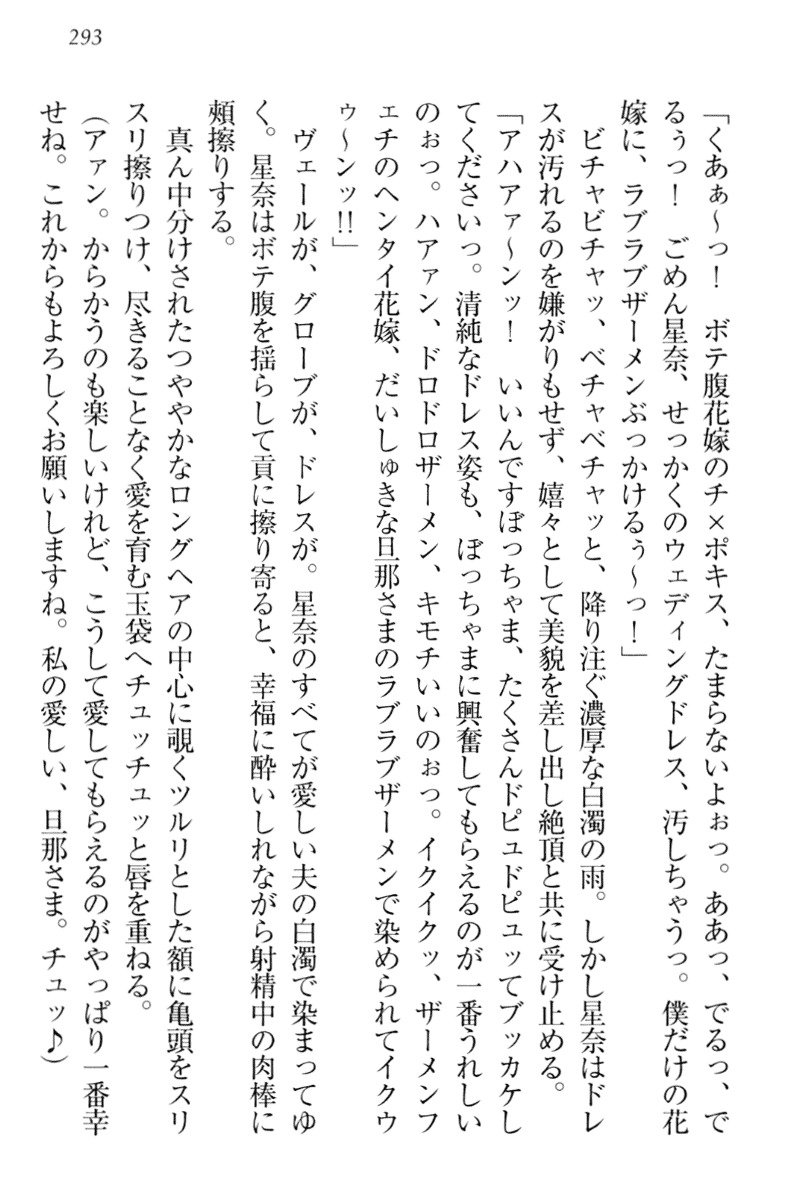 293
「くあぁ〜っ！　ボテ腹花嫁のチ×ポキス、たまらないよぉっ。ああっ、でるっ、で
るぅっ！　ごめん星奈、せっかくのウェディングドレス、汚しちゃうっ。僕だけの花
嫁に、ラブラブザーメンぶっかけるぅ〜っ！」
　ビチャビチャッ、ベチャベチャッと、降り注ぐ濃厚な白濁の雨。しかし星奈はドレ
スが汚れるのを嫌がりもせず、嬉々として美貌を差し出し絶頂と共に受け止める。
「アハアァ〜ンッ！　いいんですぼっちゃま、たくさんドピュドピュッてブッカケし
てくださいっ。清純なドレス姿も、ぼっちゃまに興奮してもらえるのが一番うれしい
のぉっ。ハアァン、ドロドロザーメン、キモチいいのぉっ。イクイクッ、ザーメンフ
ェチのヘンタイ花嫁、だいしゅきな旦那さまのラブラブザーメンで染められてイクウ
ゥ〜ンッ!!」
　ヴェールが、グローブが、ドレスが。星奈のすべてが愛しい夫の白濁で染まってゆ
く。星奈はボテ腹を揺らして貢に擦り寄ると、幸福に酔いしれながら射精中の肉棒に
頬擦りする。
　真ん中分けされたつややかなロングヘアの中心に覗くツルリとした額に亀頭をスリ
スリ擦りつけ、尽きることなく愛を育む玉袋へチュッチュッと唇を重ねる。
（アァン。からかうのも楽しいけれど、こうして愛してもらえるのがやっぱり一番幸
せね。これからもよろしくお願いしますね。私の愛しい、旦那さま。チュッ♪）